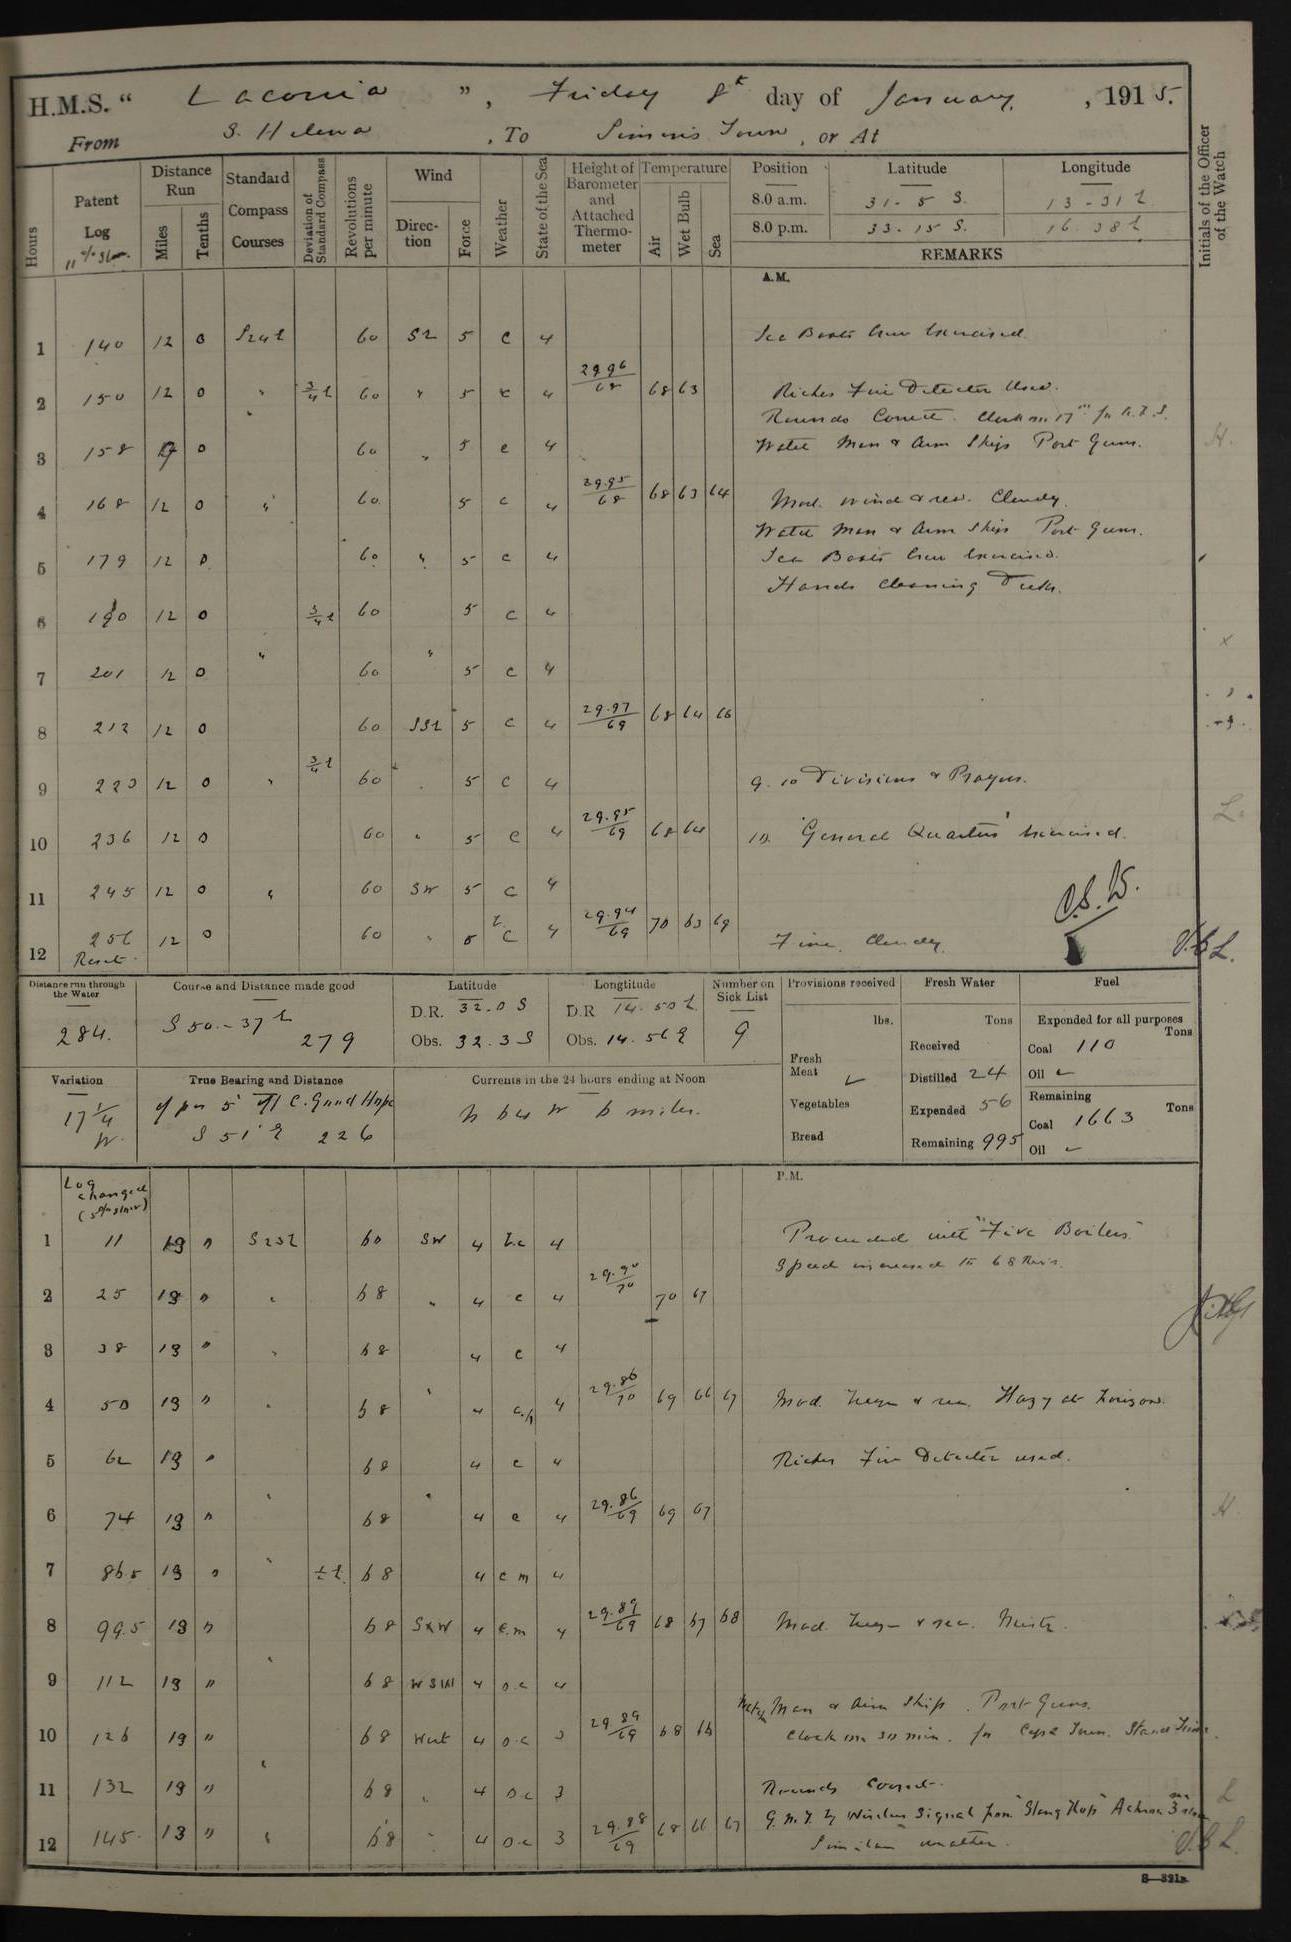 H.M.S. “ Laconia ”, Friday 8th day of January, 1915.
From S. Helena, To Simon's Town, or At
Hours
Patent Log
Distance Run
Miles
Tenths
Standard Compass Courses
Deviation of Standard Compass
Revolutions per minute
Wind
Direction
Force
Weather
State of the Sea
Height of Barometer and Attached Thermometer
Temperature
Air
Wet Bulb
Sea
Position
Latitude
Longitude
8.0 a.m. 31 - 5 S. 13 - 31 E
8.0 p.m. 33 - 15 S. 16. 38 E
REMARKS
Initials of the Officer of the Watch
A.M.
1 140 12 0 S24E 60 SE 5 c 4 Sea Boats Crew Exercised
2 150 12 0 " 3/4 E 60 " 5 c 4 29.96/68 68 63 Riches Fire Detector Used.
Rounds Correct. Clock on 17m for A.T.S.
3 158 9 0 60 " 5 c 4 Watch Man & Arm Ships Port Guns.
4 168 12 0 " 60 5 c 4 29.95/68 68 63 64 Mod. wind & sea. Cloudy.
Watch Man & Arm Ships Port Guns.
5 179 12 0 60 " 5 c 4 Sea Boats Crew Exercised.
Hands Cleaning Decks.
6 190 12 0 3/4 E 60 5 c 4
7 201 12 0 " 60 " 5 c 4
8 212 12 0 60 SSE 5 c 4 29.97/69 68 64 66
9 223 12 0 " 3/4 E 60 " 5 c 4 9. 10 Divisions & Prayers.
10 236 12 0 60 " 5 c 4 29.95/69 68 64 10. "General Quarters" Exercised.
11 245 12 0 " 60 SW 5 c 4
12 256 12 0 60 " 5 c 4 29.94/69 70 63 69 Fine, Cloudy.
Reset
Distance run through the Water
284.
Course and Distance made good
S 50.-37 E
279
Latitude
D.R. 32.0 S
Obs. 32.3 S
Longtitude
D.R. 14.50 E.
Obs. 14.56 E
Number on Sick List
9
Provisions received
lbs.
Fresh Meat
Vegetables
Bread
Fresh Water
Tons
Received
Distilled 24
Expended 56
Remaining 995
Fuel
Expended for all purposes
Tons
Coal 110
Oil
Remaining
Coal 1663 Tons
Oil
Variation
17 1/4 W.
True Bearing and Distance
of pos 5' off C. Good Hope
S 51° E 226
Currents in the 24 hours ending at Noon
N b4 W 6 miles.
P.M.
Log changed
1 11 13 " S23E 60 SW 4 b.c 4 Proceeded with "Five Boilers"
Speed increased to 68 Revs.
2 25 13 " " 68 " 4 c 4 29.90/70 70 67
3 38 13 " " 68 4 c 4
4 50 13 " " 68 " 4 c./h 4 29.86/70 69 66 67 Mod. breeze & sea. Hazy at horizon.
5 62 13 " 68 4 c 4 Riches Fire Detector used.
6 74 13 " " 68 " 4 c 4 29.86/69 69 67
7 86.5 13 " " 68 4 c m 4
8 99.5 13 " 68 SxW 4 c.m 4 29.89/69 68 67 68 Mod. breeze & sea. Misty.
9 112 13 " " 68 WSW 4 o.c 4
Watch Man & Arm Ship. Port Guns.
10 126 13 " 68 West 4 o.c 3 29.89/69 68 66 Clock on 30 min. for Cape Town. Stand. Time.
11 132 13 " " 68 " 4 o.c 3 Rounds Correct.
G.M.T. by Wireless Signal from "Slang Kop"
12 145 13 " " 68 " 4 o.c 3 29.88/69 68 66 67 Similar weather.
S—321a.